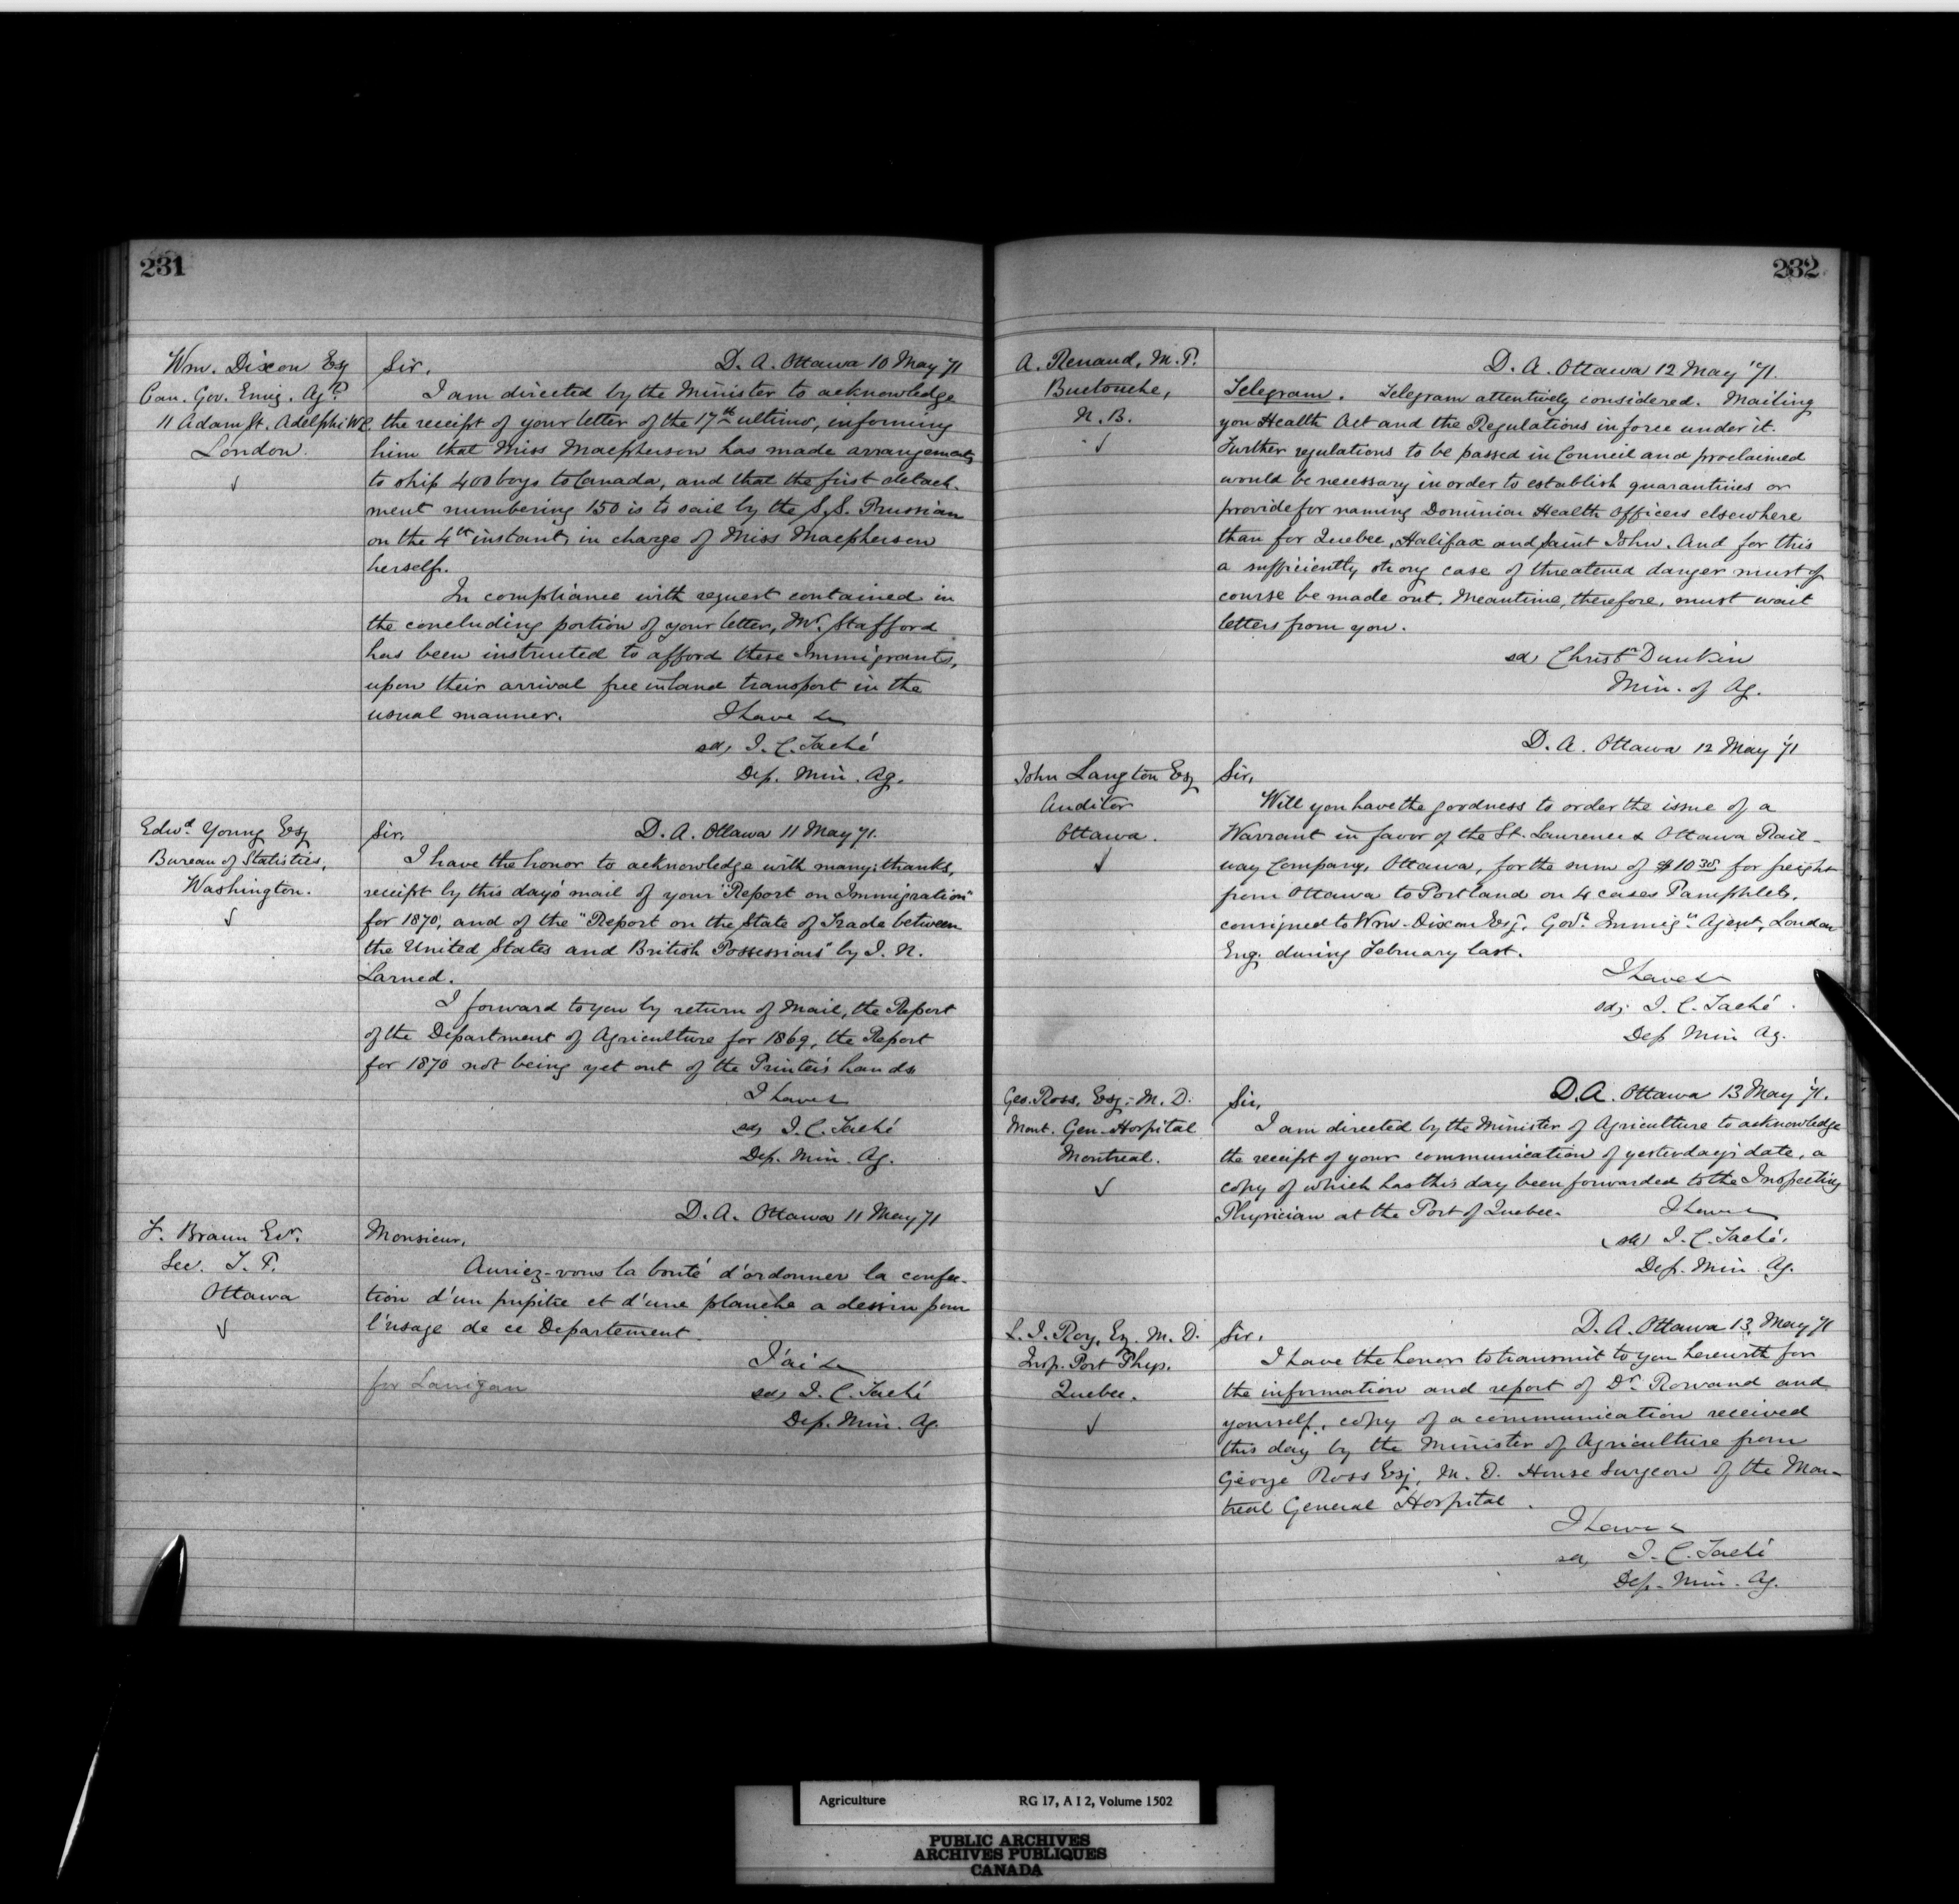 231
Wm. Dixon Esq
Can. Gov. Emig. Agt.
11 Adam St. Adelphi W.C.
London.
Sir, D. A. Ottawa 10 May '71
I am directed by the Minister to acknowledge
the receipt of your letter of the 17th ultimo, informing
him that Miss Macpherson has made arrangements
to ship 400 boys to Canada, and that the first detach-
ment numbering 150 is to sail by the S.S. Prussian
on the 4th instant, in charge of Miss Macpherson
herself.
In compliance with request contained in
the concluding portion of your letter, Mr. Stafford
has been instructed to afford these Immigrants,
upon their arrival free inland transport in the
usual manner. I have &c
sd, J. C. Taché
Dep. Min. Ag.
Edwd. Young Esq
Bureau of Statistics,
Washington.
Sir, D. A. Ottawa 11 May '71.
I have the honor to acknowledge with many thanks,
receipt by this day's mail of your "Report on Immigration"
for 1870, and of the "Report on the State of Trade between
the United States and British Possessions" by J. N.
Larned.
I forward to you by return of Mail, the Report
of the Department of Agriculture for 1869, the Report
for 1870 not being yet out of the Printer's hands
I have &c
sd, J. C. Taché
Dep. Min. Ag.
D. A. Ottawa 11 May '71
F. Braun Ecr.
Sec. T. P.
Ottawa
Monsieur,
Auriez-vous la bonté d'ordonner la confec-
tion d'un pupitre et d'une planche a dessin pour
l'usage de ce Departement.
J'ai &c
for Lanigan
sd, J. C. Taché
Dep. Min. Ag.
232
A. Renaud, M. P.
Buctouche,
N. B.
D. A. Ottawa 12 May '71.
Telegram. Telegram attentively considered. Mailing
you Health Act and the Regulations in force under it.
Further regulations to be passed in Council and proclaimed
would be necessary in order to establish quarantines or
provide for naming Dominion Health Officers elsewhere
than for Quebec, Halifax and Saint John. And for this
a sufficiently strong case of threatened danger must of
course be made out. Meantime, therefore, must wait
letters from you.
sd, Christr Dunkin
Min. of Ag.
D. A. Ottawa 12 May '71
John Langton Esq
Auditor
Ottawa.
Sir,
Will you have the goodness to order the issue of a
Warrant in favor of the St. Laurence & Ottawa Rail-
way Company, Ottawa, for the sum of $10 38 for freight
from Ottawa to Portland on 4 cases Pamphlets,
consigned to Wm. Dixon Esq. Govt. Emmign. Agent, London
Eng. during February last.
I have &c
sd, J. C. Taché.
Dep Min Ag.
Geo. Ross, Esq. M. D.
Mont. Gen. Hospital
Montreal.
Sir, D. A. Ottawa 13 May '71.
I am directed by the Minister of Agriculture to acknowledge
the receipt of your communication of yesterday's date, a
copy of which has this day been forwarded to the Inspecting
Physician at the Port of Quebec. I have &c
(sd) J. C. Taché.
Dep. Min. Ag.
L. J. Roy, Eq. M. D.
Insp. Port Phys.
Quebec.
Sir, D. A. Ottawa 13, May '71
I have the honor to transmit to you herewith for
the information and report of Dr. Rowand and
yourself, copy of a communication received
this day by the Minister of Agriculture from
George Ross Esq, M. D. House Surgeon of the Mon-
treal General Hospital.
I have &c
sd, J. C. Taché
Dep. Min. Ag.
Agriculture RG 17, A I 2, Volume 1502
PUBLIC ARCHIVES
ARCHIVES PUBLIQUES
CANADA